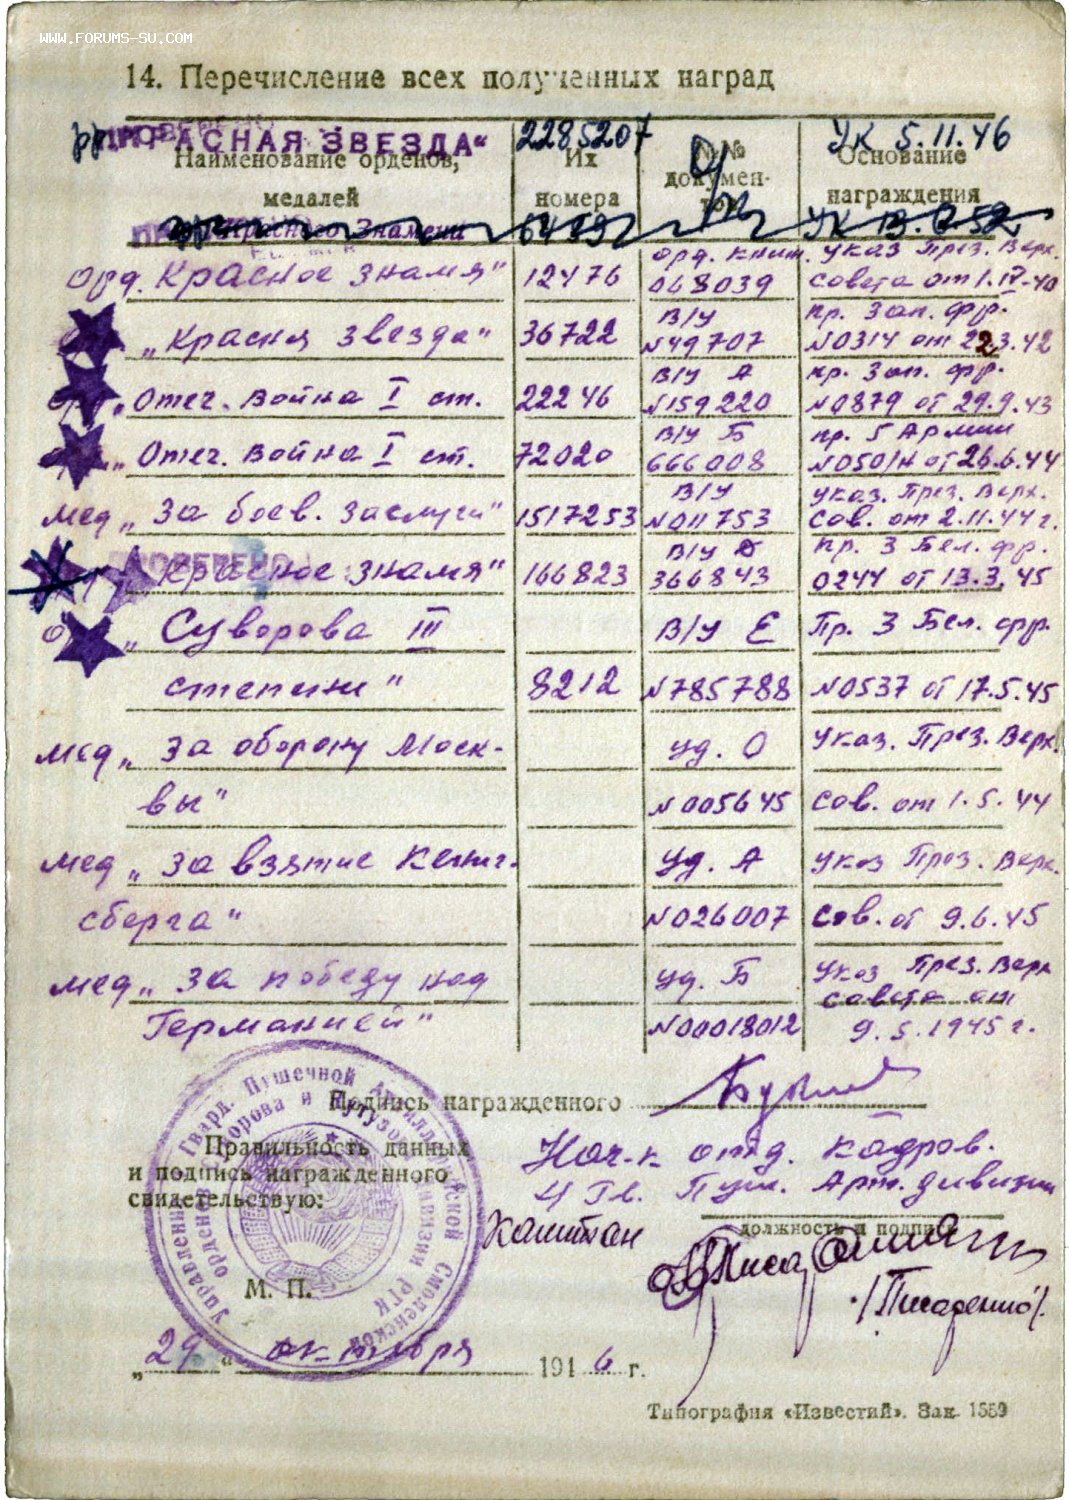 WWW.FORUMS-SU.COM
14. Перечисление всех полученных наград
ПРОВЕРЕНО
КРАСНАЯ ЗВЕЗДА" 2285207 УК 5.11.46
Наименование орденов, медалей
Их номера
№№ документов
Основание награждения
Красного Знамени УК 13.6.52
Орд. "Красное знамя" 12476 орд. книж. 068039 указ През. Верх. совета от 1.IV-40
"Красная звезда" 36722 В/У №49707 пр. Зап. фр. №0314 от 22.3.42
"Отеч. Война I ст. 22246 В/У А №159220 пр. Зап. фр. №0879 от 29.9.43
"Отеч. Война I ст. 72020 В/У Б 666008 пр. 5 Армии №050/н от 26.6.44
мед "За боев. заслуги" 1517253 В/У №011753 указ. През. Верх. Сов. от 2.11.44 г.
ПРОВЕРЕНО
Красное знамя" 166823 В/У 366843 пр. 3 Бел. фр. 0244 от 13.3.45
"Суворова III В/У Е Пр. 3 Бел. фр.
степени" 8212 №785788 №0537 от 17.5.45
мед "За оборону Моск- уд. О указ. През. Верх.
вы" №005645 Сов. от 1.5.44
мед "За взятие Кениг- уд. А указ През. Верх.
сберга" №026007 Сов. от 9.6.45
мед "За победу над уд. Б указ През. Верх
Германией" №00018012 совета от 9.5.1945 г.
Подпись награжденного
Правильность данных
и подпись награжденного
свидетельствую:
Нач-к отд. кадров.
4 Гв. Пуш. Арт. дивизии
должность и подпись
капитан
/Писаренко/.
М. П.
Управление Гвард. Пушечной Артиллерийской Смоленской
орденов Суворова и Кутузова дивизии РГК
„29“ октября 1946 г.
Типография «Известий». Зак. 1559